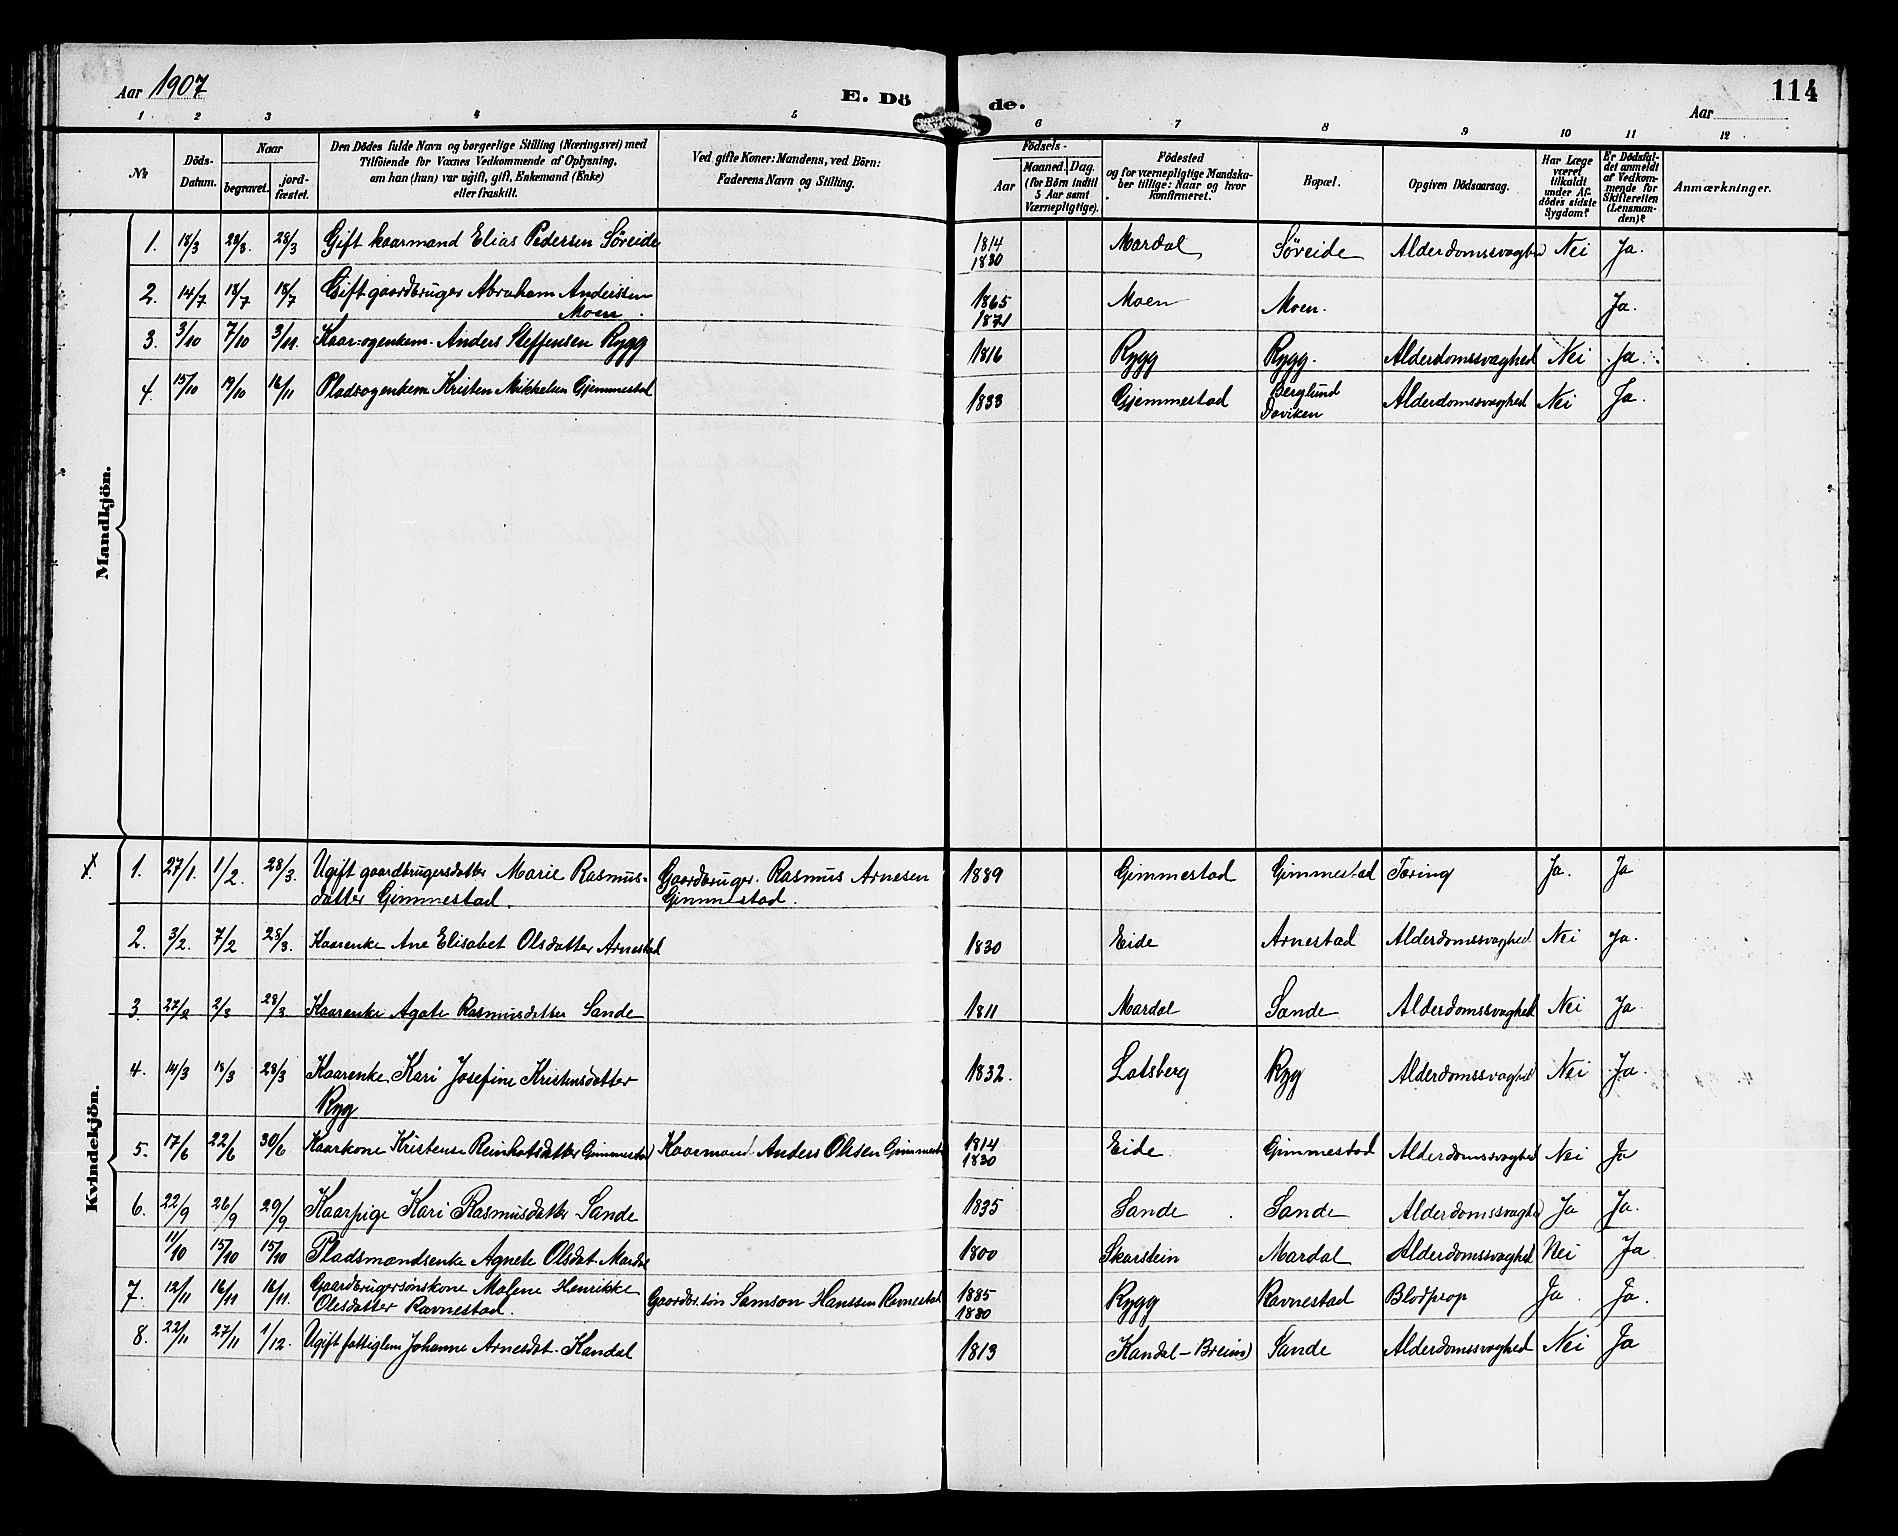 Aar 1907
E. Dö
de.
Aar
114
1 2 3 4 5 6 7 8 9 10 11 12
No
Döds-
Datum.
Naar
begravet.
jord-
fæstet.
Den Dödes fulde Navn og borgerlige Stilling (Næringsvei) med
Tilföiende for Voxnes Vedkommende af Oplysning,
om han (hun) var ugift, gift, Enkemand (Enke)
eller fraskilt.
Ved gifte Koner: Mandens, ved Börn:
Faderens Navn og Stilling.
Födsels-
Aar
Maaned. Dag.
(for Börn indtil
5 Aar samt
Værnepligtige).
Födested
og for værnepligtige Mandska-
ber tillige: Naar og hvor
Konfirmeret.
Bopæl.
Opgiven Dödsaarsag.
Har Læge
været
tilkaldt
under Af-
dödes sidste
Sygdom?
Er Dödsfal-
det anmeldt
af Vedkom-
mende for
Skifteretten
(Lensman-
den)?
Anmærkninger.
Mandkjön.
1. 18/3 28/3. 28/3 Gift kaarmand Elias Pedersen Söreide 1814 1830 Mardal Söreide Alderdomssvaghed Nei Ja.
2. 14/7 18/7 18/7 Gift gaardbruger Abraham Anderssen
Moen. 1865 1871 Moen Moen. Ja.
3. 3/10 7/10 3/11. Kaar-ogenkem. Anders Steffensen Rygg 1816 Rygg Rygg. Alderdomssvaghed Nei Ja
4. 15/10 19/10 16/11 Pladsogenkem Kristen Mikkelsen Gjemmestad 1833 Gjemmestad Berglund
Daviken Alderdomssvaghed Nei Ja.
Kvindekjön.
1. 27/1. 1/2. 28/3. Ugift gaardbrugersdatter Marie Rasmus-
datter Gimmestad. Gaardbruger. Rasmus Arnesen
Gimmestad. 1889 Gimmestad Gimmestad Tæring Ja. Ja
2. 3/2. 7/2 28/3. Kaarenke Ane Elisabet Olsdatter Arnestad 1830 Eide Arnestad Alderdomssvaghed Nei Ja.
3. 27/2 2/3 28/3 Kaarenke Agate Rasmusdatter Sande 1811 Mardal Sande Alderdomssvaghed Nei Ja
4. 14/3 18/3 28/3 Kaarenke Kari Josefine Kristensdatter
Ryg 1832. Lotsberg Ryg Alderdomssvaghed Nei Ja.
5. 17/6 22/6 30/6 Kaarkone Kristense Reinhotsdatter Gimmestad Kaarmand Anders Olsen Gimmestad 1814 1830 Eide Gimmestad Alderdomssvaghed Nei Ja
6. 22/9 26/9 29/9 Kaarpige Kari Rasmusdatter Sande 1835 Sande Sande Alderdomssvaghed Ja Ja.
11/10 15/10 15/10 Pladsmandsenke Agnete Olsdat. Mardal 1800 Skarstein Mardal Alderdomssvaghed Nei Ja
7. 12/11 16/11 16/11. Gaardbrugersönskone Malene Henrikke
Olesdatter Ravnestad. Gaardbr.sön Samson Hanssen Ravnestad 1885 1830 Rygg Ravnestad Blodprop Ja. Ja.
8. 22/11 27/11 1/12. Ugift fattiglem Johanne Arnesdat. Kandal 1813 Kandal - Breim) Sande Alderdomssvaghed Nei Ja